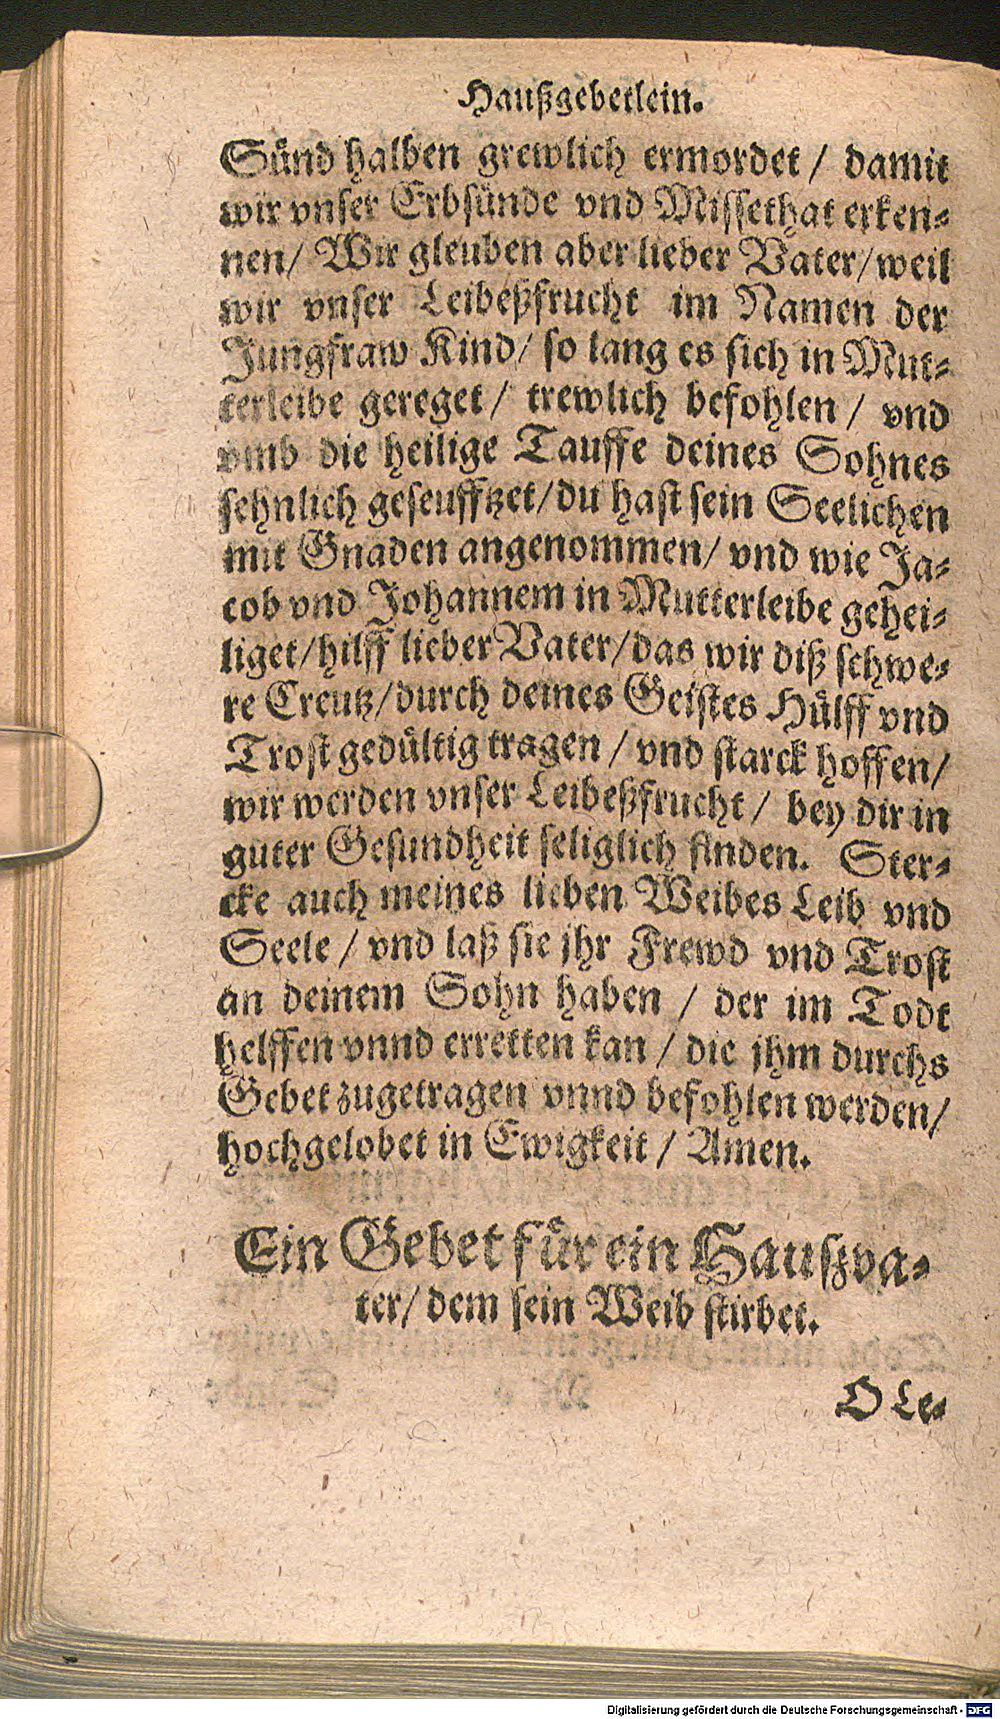 Haußgebetlein.
Sünd halben grewlich ermordet / damit
wir vnser Erbsünde vnd Missethat erken⸗
nen/ Wir gleuben aber lieber Vater/weil
wir vnser Leibeßfrucht im Namen der
Jungfraw Kind/ so lang es sich in Mut⸗
terleibe gereget / trewlich befohlen / vnd
vmb die heilige Tauffe deines Sohnes
sehnlich geseufftzet/du hast sein Seelichen
mit Gnaden angenommen/ vnd wie Ja⸗
cob vnd Johannem in Mutterleibe gehei⸗
liget/hilff lieber Vater/das wir diß schwe⸗
re Creutz/durch deines Geistes Hülff vnd
Trost gedültig tragen / vnd starck hoffen/
wir werden vnser Leibeßfrucht / bey dir in
guter Gesundheit seliglich finden. Ster⸗
cke auch meines lieben Weibes Leib vnd
Seele / vnd laß sie jhr Frewd vnd Trost
an deinem Sohn haben / der im Todt
helffen vnnd erretten kan / die jhm durchs
Gebet zugetragen vnnd befohlen werden/
hochgelobet in Ewigkeit / Amen.
Ein Gebet für ein Haußva⸗
ter/ dem sein Weib stirbet.
O Le⸗
Digitalisierung gefördert durch die Deutsche Forschungsgemeinschaft - DFG